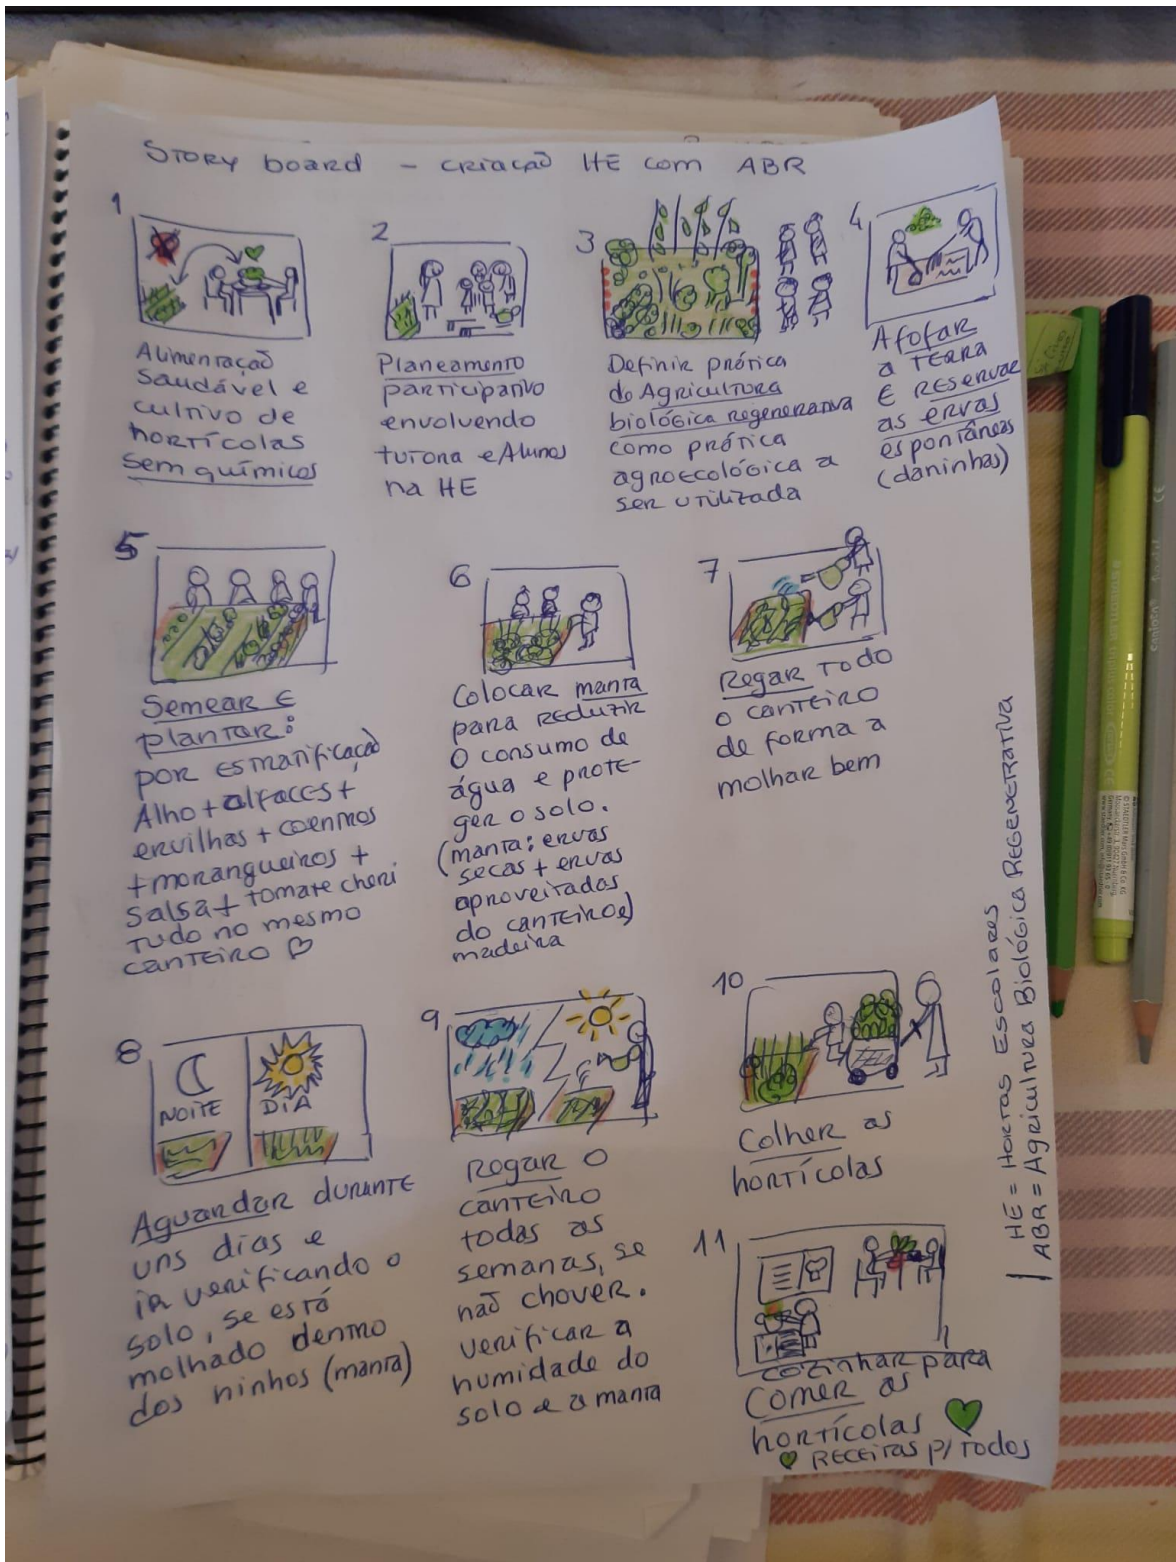 STORY board - criação HE com ABR
1
Alimentação
saudável e
cultivo de
hortícolas
sem químicos
2
Planeamento
participativo
envolvendo
turma e Alunos
na HE
3
Definir prática
de Agricultura
biológica regenerativa
como prática
agroecológica a
ser utilizada
4
Afofar
a TERRA
E RESERVAR
as ervas
espontâneas
(daninhas)
5
Semear E
plantar:
por estratificação
Alho + alfaces +
ervilhas + coentros
+ morangueiros +
salsa + tomate cheri
tudo no mesmo
canteiro ♡
6
Colocar manta
para REDUZIR
O consumo de
água e prote-
ger o solo.
(manta: ervas
secas + ervas
aproveitadas
do canteiro e)
madeira
7
Regar Todo
o canteiro
de forma a
molhar bem
8
NOITE
DIA
Aguardar durante
uns dias e
ir verificando o
solo, se está
molhado dentro
dos ninhos (manta)
9
Regar o
canteiro
todas as
semanas, se
não chover.
verificar a
humidade do
solo e a manta
10
Colher as
hortícolas
11
cozinhar para
Comer as
hortícolas
RECEITAS p/ Todos
HE = HORTAS ESCOLARES
ABR = Agricultura Biológica REGENERATIVA